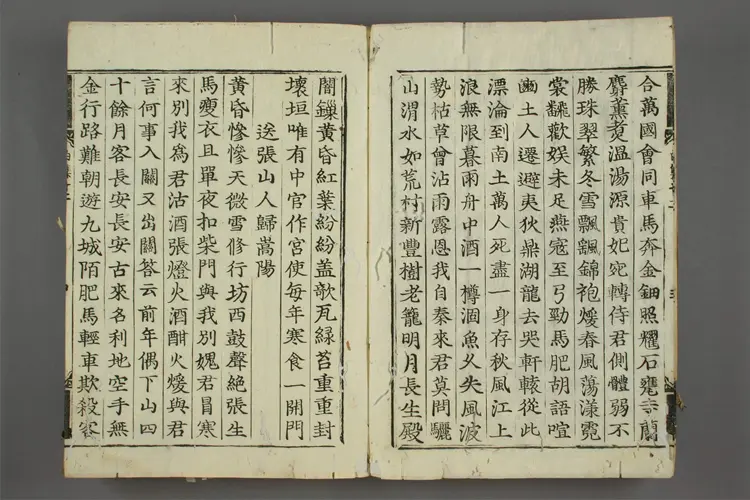 合萬國會同車馬奔金鈿照耀石甕寺蘭
麝薰煑溫湯源貴妃宛轉侍君側體弱不
勝珠翠繁冬雪飄颻錦袍煖春風蕩漾霓
裳飜歡娱未足燕寇至弓勁馬肥胡語喧
豳土人遷避夷狄鼎湖龍去哭軒轅從此
漂淪到南土萬人死盡一身存秋風江上
浪無限暮雨舟中酒一樽涸魚久失風波
勢枯草曾沾雨露恩我自秦來君莫問驪
山渭水如荒村新豐樹老籠明月長生殿
闇鏁黄昏紅葉紛紛蓋欹瓦緑苔重重封
壞垣唯有中官作宮使每年寒食一開門
送張山人歸嵩陽
黄昏慘慘天微雪修行坊西鼓聲絶張生
馬瘦衣且單夜扣柴門與我別媿君冒寒
來別我爲君沽酒張燈火酒酣火煖與君
言何事入關又出關答云前年偶下山四
十餘月客長安長安古來名利地空手無
金行路難朝遊九城陌肥馬輕車欺殺客